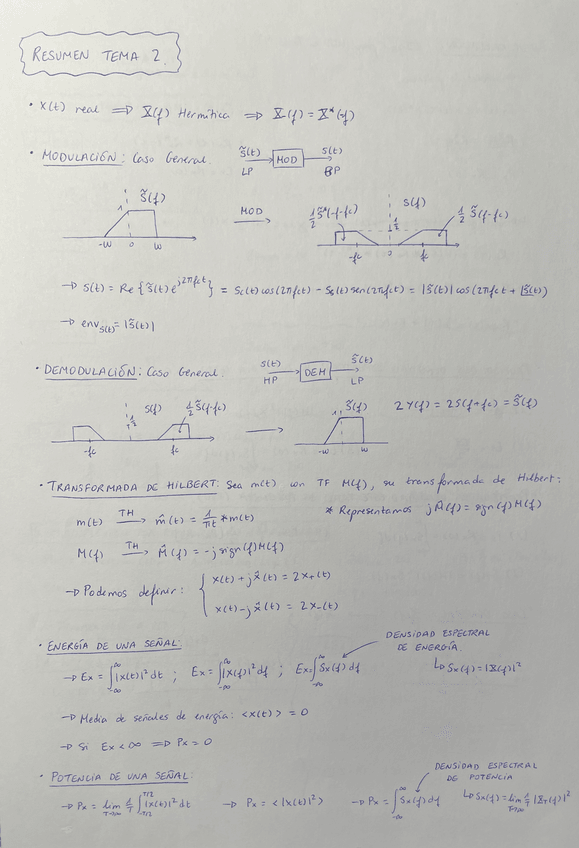 RESUMEN TEMA 2.
· x(t) real ⟹ X(f) Hermítica ⟹ X(f) = X*(-f)
· MODULACIÓN: Caso General. s̃(t) → MOD → s(t)
LP BP
1 S̃(f) -W 0 W
MOD →
½ S̃*(-f-fc) S(f) ½ ½ S̃(f-fc)
-fc 0 fc
→ s(t) = Re{s̃(t) e^{j2πfct}} = sc(t)cos(2πfct) - ss(t)sen(2πfct) = |s̃(t)| cos(2πfct + ∠s̃(t))
→ env s(t) = |s̃(t)|
· DEMODULACIÓN: Caso General. s(t) → DEM → s̃(t)
HP LP
S(f) ½ ½ S̃(f-fc) → 1 S̃(f) 2Y(f) = 2S(f+fc) = S̃(f)
-fc fc -W W
· TRANSFORMADA DE HILBERT: Sea m(t) con TF M(f), su transformada de Hilbert:
m(t) TH→ m̂(t) = 1/πt * m(t) * Representamos jM̂(f) = sgn(f)M(f)
M(f) TH→ M̂(f) = -j sign(f)M(f)
→ Podemos definir: { x(t) + jx̂(t) = 2x₊(t)
x(t) - jx̂(t) = 2x₋(t)
· ENERGÍA DE UNA SEÑAL: DENSIDAD ESPECTRAL
DE ENERGÍA.
→ Ex = ∫_{-∞}^{∞} |x(t)|² dt ; Ex = ∫_{-∞}^{∞} |X(f)|² df ; Ex = ∫_{-∞}^{∞} Sx(f) df ↳ Sx(f) = |X(f)|²
→ Media de señales de energía: <x(t)> = 0
→ Si Ex < ∞ ⟹ Px = 0
· POTENCIA DE UNA SEÑAL: DENSIDAD ESPECTRAL
DE POTENCIA
→ Px = lim_{T→∞} 1/T ∫_{-T/2}^{T/2} |x(t)|² dt → Px = <|x(t)|²> → Px = ∫_{-∞}^{∞} Sx(f) df ↳ Sx(f) = lim_{T→∞} 1/T |X_T(f)|²